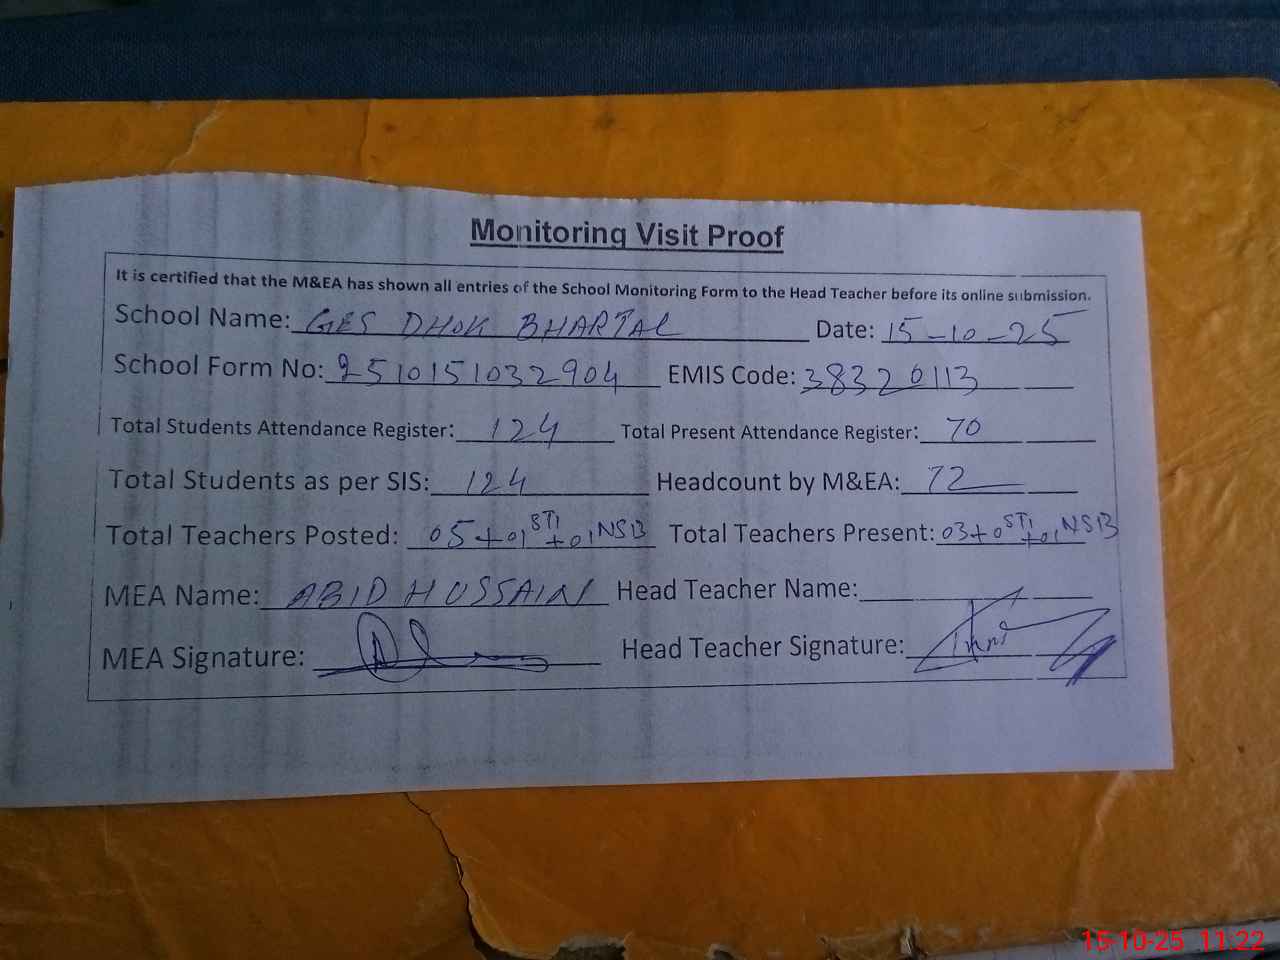 Monitoring Visit Proof
It is certified that the M&EA has shown all entries of the School Monitoring Form to the Head Teacher before its online submission.
School Name: GES DHOK BHARTAL Date: 15-10-25
School Form No: 2510151032904 EMIS Code: 38320113
Total Students Attendance Register: 124 Total Present Attendance Register: 70
Total Students as per SIS: 124 Headcount by M&EA: 72
Total Teachers Posted: 05+01 STI +01 NSB Total Teachers Present: 03+0 STI +01 NSB
MEA Name: ABID HUSSAIN Head Teacher Name:
MEA Signature: Head Teacher Signature:
15-10-25 11:22